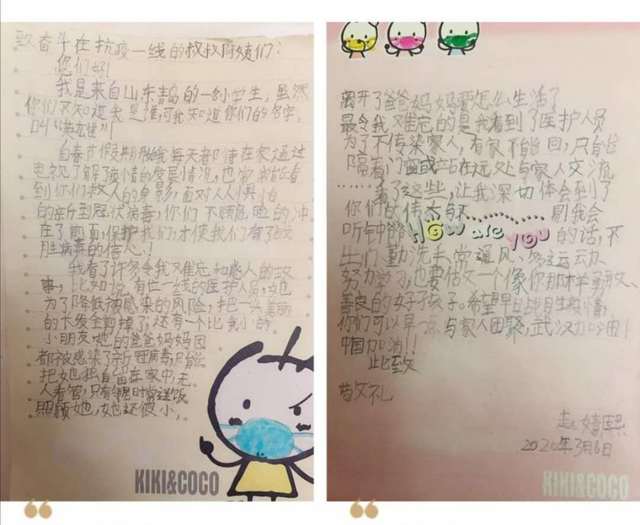 致奋斗在抗疫一线的叔叔阿姨们：
您们好！
我是来自山东青岛的一名小学生，虽然
你们不知道我是谁，可我知道你们的名字，
叫“
自春节假期
电视了解了疫情的发展情况，也常常能看
到你们救人的身影，面对人人惧怕
的新型冠状病毒，你们不顾危险的冲
在了前面保护我们，才使我们有了战
胜病毒的信心！
我看了许多令我难忘和感人的故
事，比如说，有位一线的医护人员，她
为了降低被感染的风险，把一头美丽
的长发全剪掉了，还有一个比我小的
小朋友她的爸爸妈妈因
都被感染了新冠病毒只能
把她独自留在家中，无
人看管，只有
照顾她，她还很小，
KIKI&COCO
离开了爸爸妈妈要怎么生活了
最令我难忘的是我看到了医护人员
为了不传染家人，有家不能回，只能
隔着门窗或站在远处与家人交流
……看了这些，让我深切体会到了
你们的伟大
听
HOW ARE YOU
的话，不
出门，勤洗手，常通风，多运动，
努力学习，也要做一个像你那样勇敢、
善良的好孩子。希望早日战胜疫情，
你们可以早一点与家人团聚，武汉加油！
中国加油！！
此致
敬礼
赵
2020年3月6日
KIKI&COCO